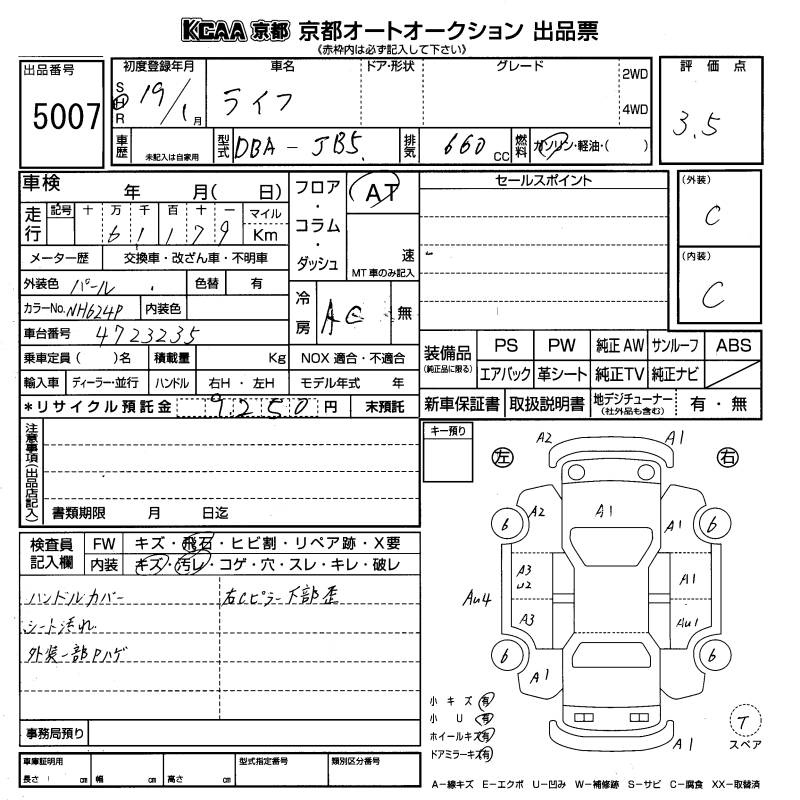 KCAA 京都 京都オートオークション 出品票
《赤枠内は必ず記入して下さい》
出品番号
5007
初度登録年月 車名 ドア・形状 グレード
S H R 19/1月 ライフ 2WD 4WD
車歴 未記入は自家用 型式 DBA-JB5 排気 660 cc 燃料 ガソリン・軽油・( )
評価点
3.5
車検 年 月( 日)
走行 記号 十 万 千 百 十 一 マイル Km
6 1 1 7 9
メーター歴 交換車・改ざん車・不明車
外装色 パール 色替 有
カラーNo. NH624P 内装色
車台番号 4723235
乗車定員( )名 積載量 Kg
輸入車 ディーラー・並行 ハンドル 右H・左H モデル年式 年
フロア・コラム・ダッシュ AT 速
MT車のみ記入
冷房 AC 無
NOX 適合・不適合
*リサイクル預託金 9250 円 未預託
セールスポイント
(外装)
C
(内装)
C
装備品 (純正品に限る) PS PW 純正AW サンルーフ ABS
エアバック 革シート 純正TV 純正ナビ
新車保証書 取扱説明書 地デジチューナー (社外品も含む) 有・無
注意事項(出品店記入)
書類期限 月 日迄
検査員記入欄 FW キズ・飛石・ヒビ割・リペア跡・X要
内装 キズ・汚レ・コゲ・穴・スレ・キレ・破レ
ハンドルカバー 右Cピラー下部歪
シート汚れ
外装一部Pハゲ
事務局預り
車庫証明用 型式指定番号 類別区分番号
長さ cm 幅 cm 高さ cm
キー預り
左 右
A2 A1
6 A2 A1 A1 6
A3 U2 A1
Au4 A3 Au1
6 A1 6
A1
小キズ 有
小U 有
ホイールキズ 有
ドアミラーキズ 有
T
スペア
A−線キズ E−エクボ U−凹み W−補修跡 S−サビ C−腐食 XX−取替済